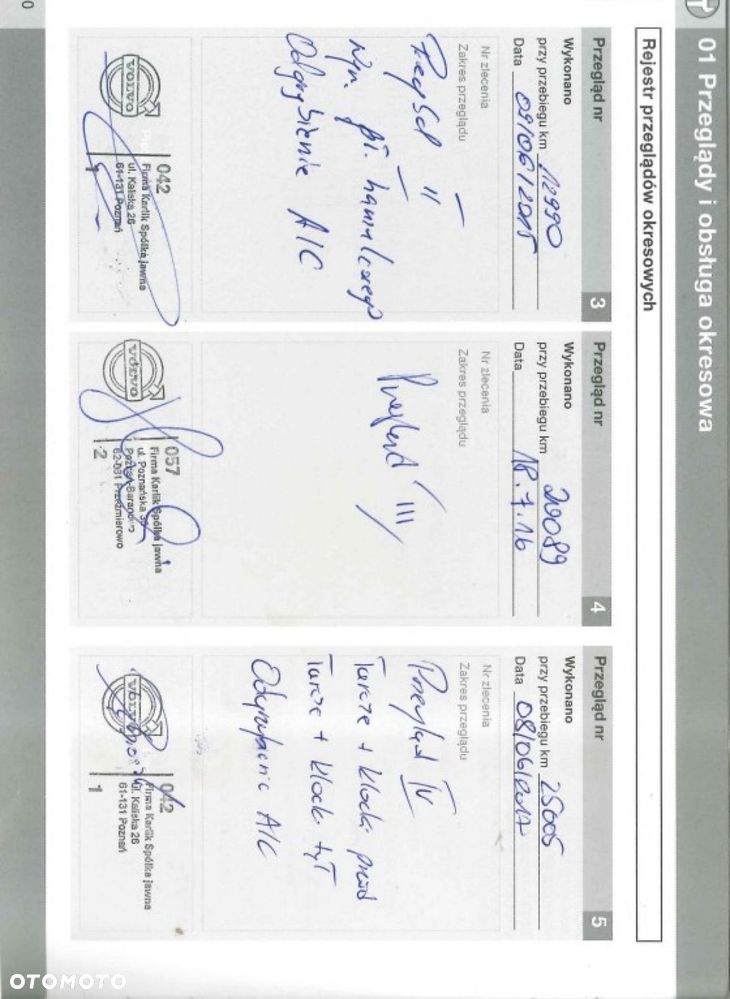 01 Przeglądy i obsługa okresowa
Rejestr przeglądów okresowych
Przegląd nr 3
Wykonano
przy przebiegu km 12990
Data 09/06/2015
Nr zlecenia
Zakres przeglądu
Przegląd II
Wym. pł. hamulcowego
Odgrzybienie A/C
VOLVO
042
Firma Karlik Spółka jawna
ul. Kaliska 26
61-131 Poznań
1
Przegląd nr 4
Wykonano
przy przebiegu km 20089
Data 18.7.16
Nr zlecenia
Zakres przeglądu
Przegląd III
VOLVO
057
Firma Karlik Spółka jawna
ul. Poznańska 
Poznań-Baranowo
62-081 Przeźmierowo
2
Przegląd nr 5
Wykonano
przy przebiegu km 25005
Data 08/06/2017
Nr zlecenia
Zakres przeglądu
Przegląd IV
Tarcze + klocki przód
Tarcze + klocki tył
Odgrzybianie A/C
VOLVO
042
Firma Karlik Spółka jawna
ul. Kaliska 26
61-131 Poznań
1
0
OTOMOTO